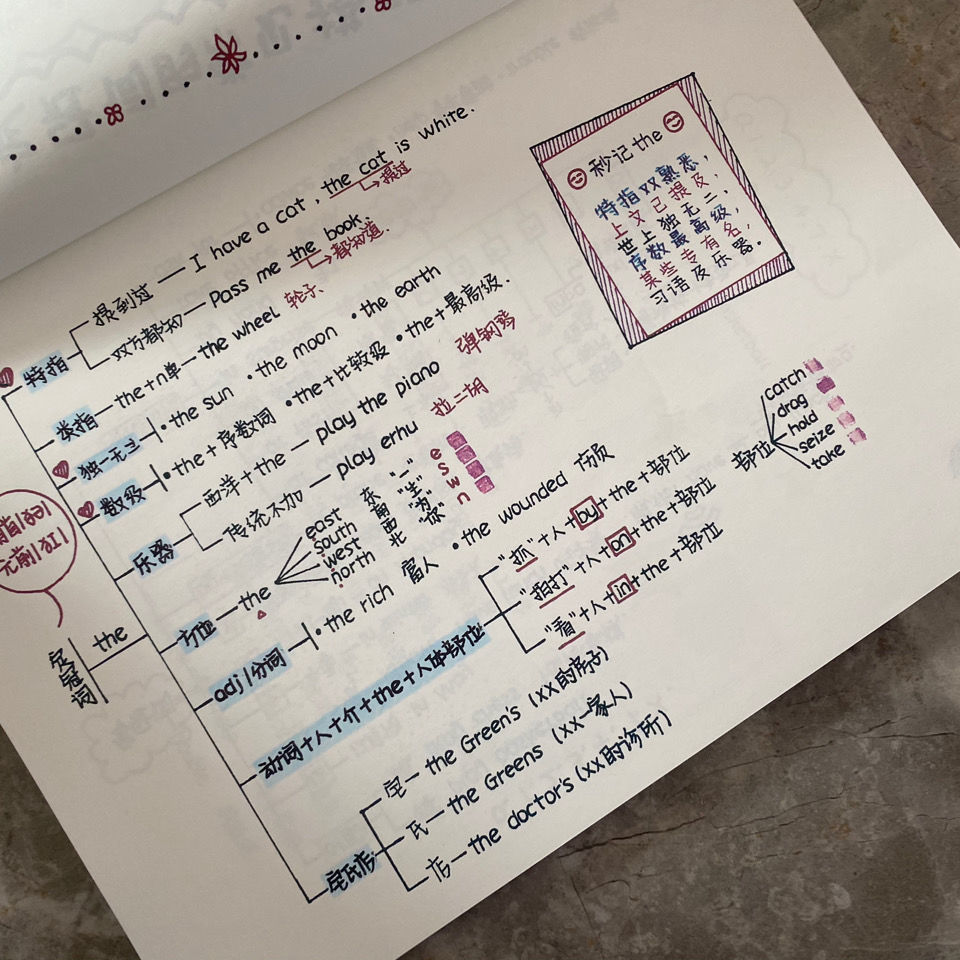 提到过 — I have a cat, the cat is white.
提过
特指
双方都知 — Pass me the book.
都知道.
类指 — the+n单 — the wheel 轮子
独一无二 •the sun •the moon •the earth
数级 •the+序数词 •the+比较级 •the+最高级.
乐器
西洋+the — play the piano 弹钢琴
传统不加 — play erhu 拉二胡
方位 — the
east 东 "一" e
south 南 "生" s
west 西 "为" w
north 北 "你" n
adj/分词 •the rich 富人 •the wounded 伤员
动词+人+介+the+人体部位
"抓"+人+by+the+部位
"拍打"+人+on+the+部位
"看"+人+in+the+部位
宅氏店
宅 — the Green's (xx的房子)
氏 — the Greens (xx一家人)
店 — the doctor's (xx的诊所)
定冠词 the
秒记the
特指双熟悉,
上文已提及,
世上独无二,
序数最高级,
某些专有名,
习语及乐器.
部位
catch
drag
hold
seize
take